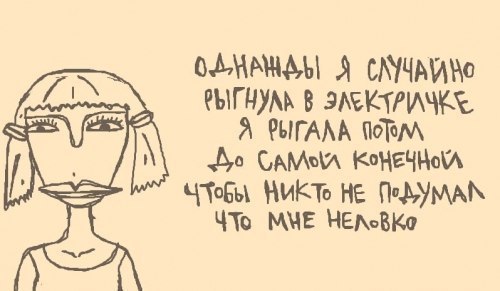 ОДНАЖДЫ Я СЛУЧАЙНО
РЫГНУЛА В ЭЛЕКТРИЧКЕ
Я РЫГАЛА ПОТОМ
ДО САМОЙ КОНЕЧНОЙ
ЧТОБЫ НИКТО НЕ ПОДУМАЛ
ЧТО МНЕ НЕЛОВКО